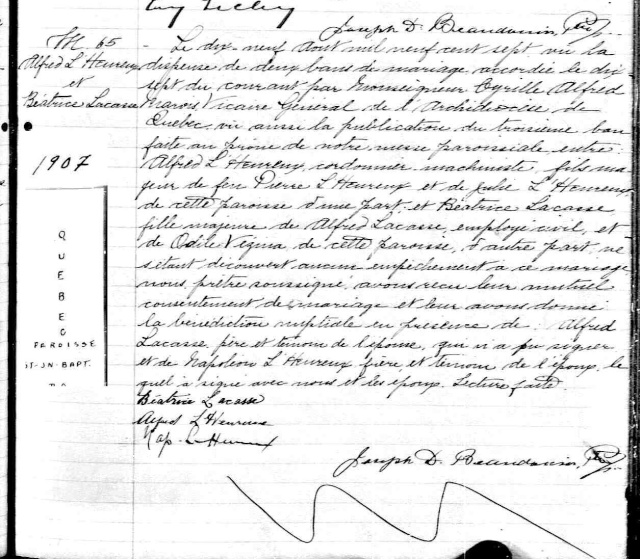 Joseph D. Beaudouin, Ptre
M. 65
Alfred L'Heureux
et
Béatrice Lacasse
1907
QUEBEC
PAROISSE
ST-JN-BAPT.
Le dix-neuf août mil neuf cent sept, vu la
dispense de deux bans de mariage accordée le dix
sept du courant par Monseigneur Cyrille Alfred
Marois Vicaire Général de l'Archidiocèse de
Québec, vu aussi la publication du troisième ban
faite au prône de notre messe paroissiale entre
Alfred L'Heureux, cordonnier machiniste, fils ma
jeur de feu Pierre L'Heureux et de Julie L'Heureux
de cette paroisse d'une part, et Béatrice Lacasse
fille majeure de Alfred Lacasse, employé civil, et
de Odile Vézina de cette paroisse, d'autre part, ne
s'étant découvert aucun empêchement à ce mariage
nous, prêtre soussigné, avons reçu leur mutuel
consentement de mariage et leur avons donné
la bénédiction nuptiale en présence de Alfred
Lacasse, père et témoin de l'épouse, qui n'a pu signer
et de Napoléon L'Heureux frère et témoin de l'époux, le
quel a signé avec nous et les époux. Lecture faite.
Béatrice Lacasse
Alfred L'Heureux
Nap. L'Heureux
Joseph D. Beaudouin, Ptre